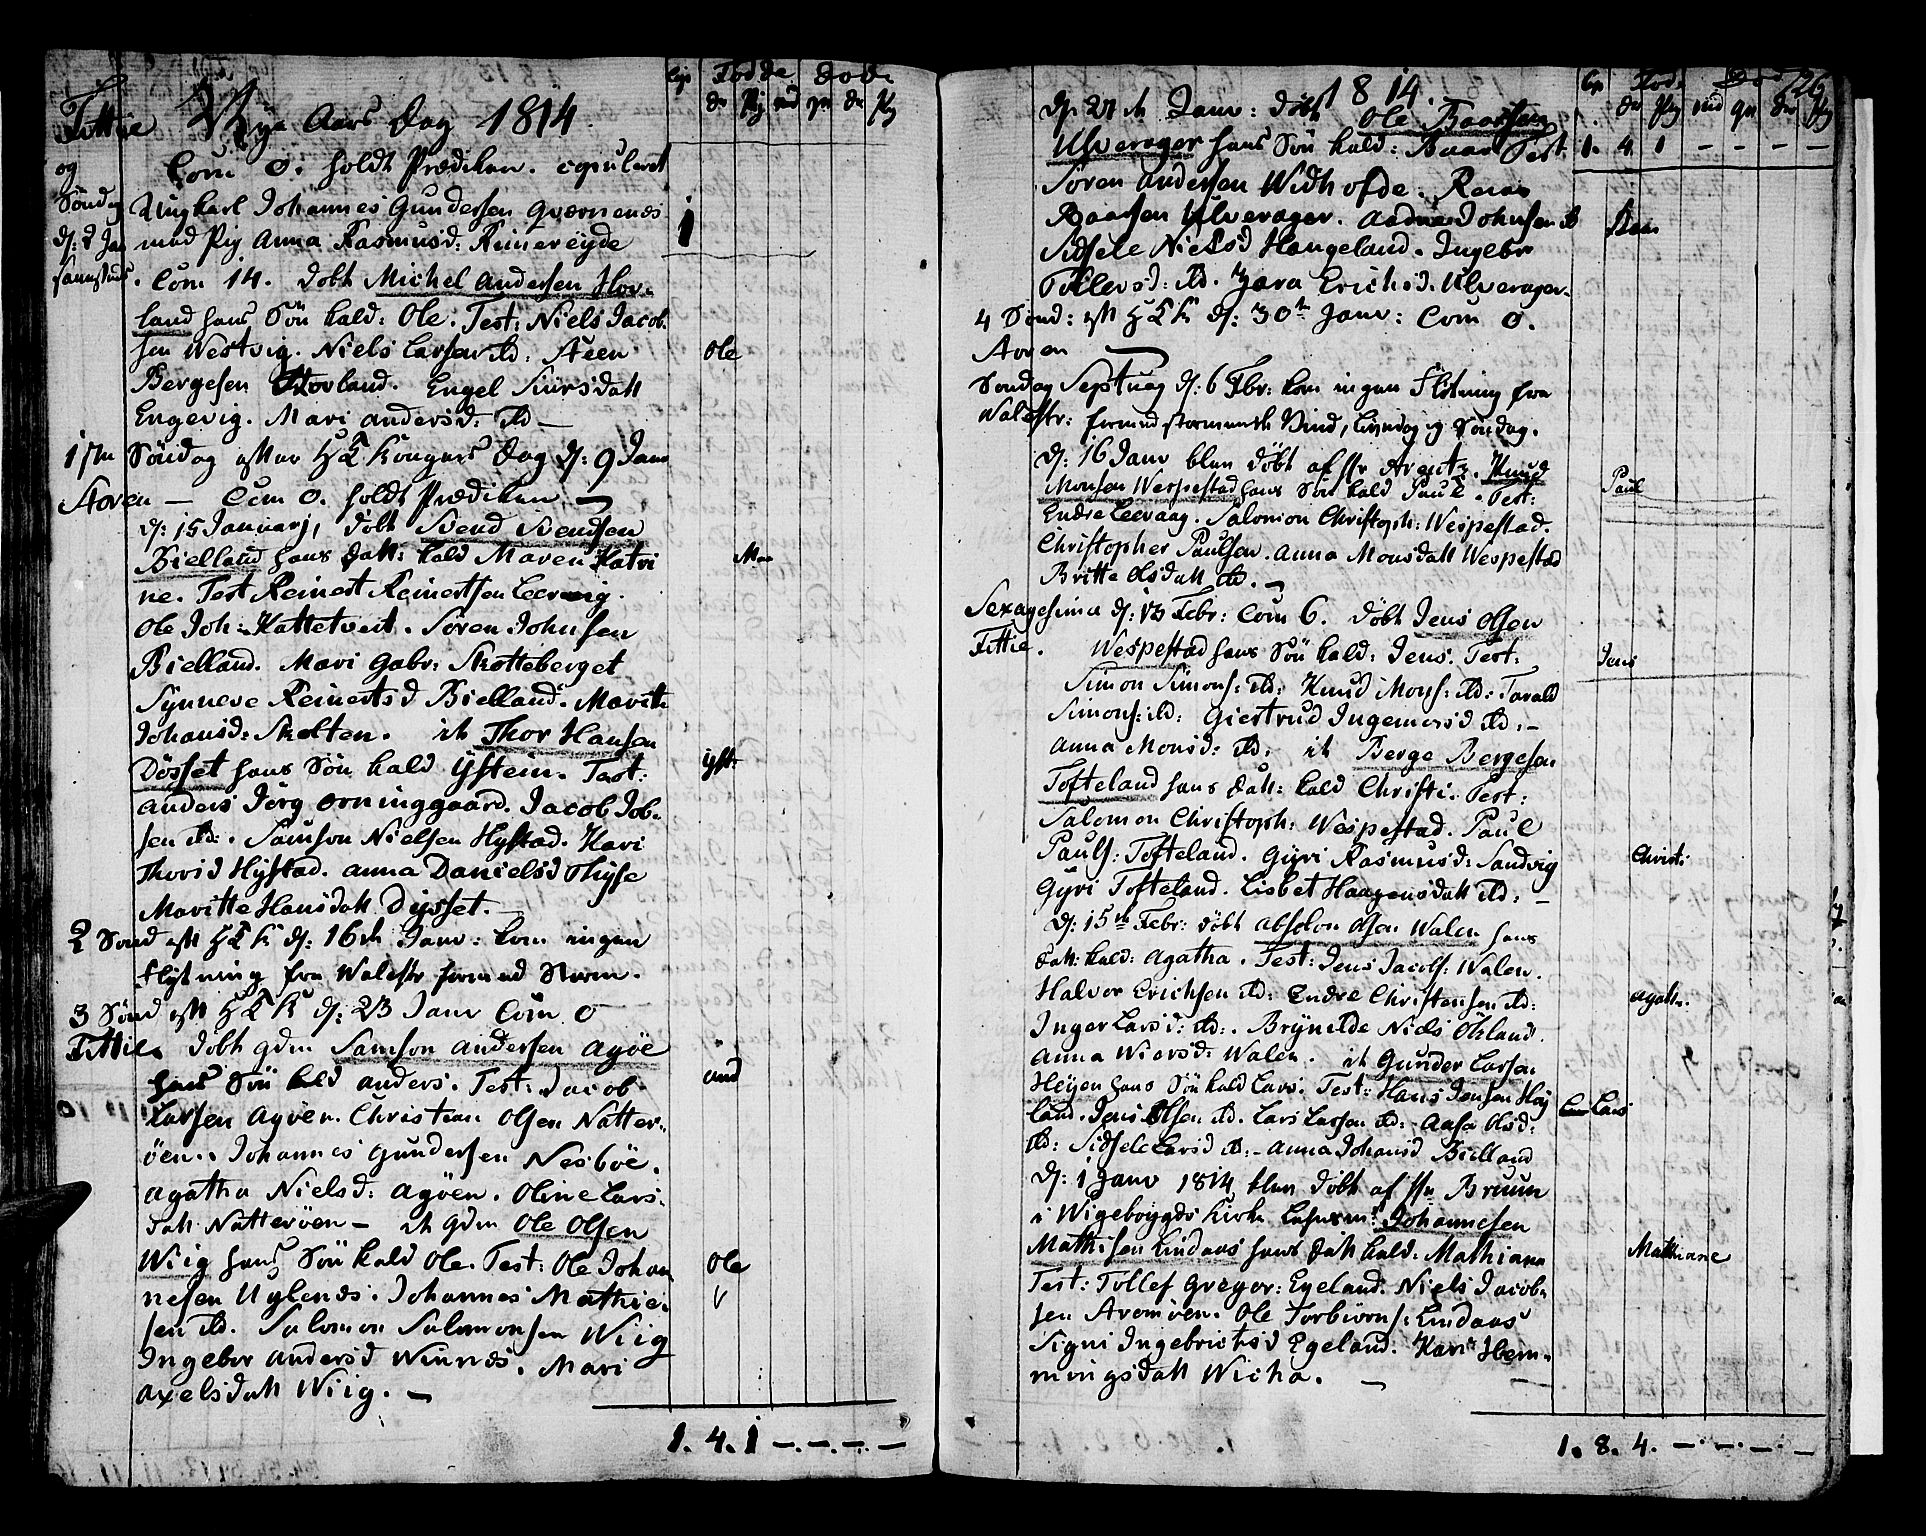 Cop Fødde Døde
dr Pig
Fittie Nye Aars Dag 1814
og Com 0. holdt Prædiken. copuleret
Søndag Ungkarl Johannes Gundersen Qvernenes
d: 2 Jan med Pig Anna Rasmusd: Reinereyde 1
Com 14. døbt Michel Andersen Hov-
land hans Søn kald: Ole. Test: Niels Jacob-
sen Westvig. Niels Larsen ibd: Steen Ole
Bergesen Hovland. Engel Siursdatt
Engevig. Mari Andersd: ibd —
1ste Søndag efter H 3 Kongers Dag d: 9 Jan
Storen — Com 0. holdt Prædiken —
d: 15 Januarj, døbt Svend Svendsen
Bielland hans datt: kald Maren Katri Mar
ne. Test Reinert Reinertsen Leervig.
Ole Joh: Kattetveit. Søren Johnsen
Bielland. Mari Gabr: Skotteberget
Synneve Reinertsd Bielland. Maritte
Johansd: Skolten. it Thor Hansen
Døsset hans Søn kald Ÿstein. Test: ÿst:
Anders Jørg Orninggaard. Jacob Job-
sen ibd:. Samson Nielsen Hystad. Kari
Thorisd Hystad. Anna Danielsd Thyse
Maritte Hansdatt Dysset.
2 Sønd eft H 3 K d: 16de Janv: kom ingen
flytning fra Walestr formed Storm.
3 Sønd eft H 3 K d: 23 Janv Com 0
Fittie. døbt gdm Samson Andersen Agøe
hans Søn kald Anders. Test: Jacob And
Larsen Agøen. Christian Olsen Natter-
øen. Johannes Gundersen Nesbøe.
Agatha Nielsd: Agøen. Oline Lars-
datt Natterøen — it gdm Ole Olsen
Wiig hans Søn kald Ole. Test: Ole Johan Ole
nesen Uglenes. Johannes Mathie-
sen ibd. Salomon Salomonsen Wiig
Ingebor Andersd Winnes. Mari
Axelsdatt Wiig. —
1. 4. 1 —. —. —. —
1814. 126
Cop Fødde
d: 27de Janv: døbt Ole Baarsen
Ulverager hans Søn kald: Baar Test 1. 4. 1 — — — —
Søren Andersen Widhofde.
Baarsen Ulverager. Aadne Johnsen ib Baar
Sidsele Nielsd Haugeland. Ingebr
Tollevsd: ibd. Zara Erichsd. Ulverager.
4 Sønd: eft H 3 K d: 30te Janv: Com 0.
Storen
Søndag Septuag d: 6 Febr: kom ingen flÿtning fra
Walestr: formed stormende Vind, Løverdag og Søndag.
d: 16 Janv blev døbt af Hr Arentz. Knud
Monsen Wespestad hans Søn kald Paul. Test: Paul
Endre Leervaag. Salomon Christoph: Wespestad.
Christopher Paulsen. Anna Monsdatt Wespestad
Britte Olsdatt ibd. —
Sexagesima d: 13 Febr: Com 6. døbt Jens Olsen
Fittie. Wespestad hans Søn kald: Jens. Test: Jens
Simon Simons: ibd: Knud Mons: ibd: Tarald
Simons: ibd: Giertrud Ingemersd ibd: —
Anna Monsd: ibd: it Berge Bergesen
Tofteland hans datt: kald Christi. Test:
Salomon Christoph: Wespestad. Paul
Pauls: Tofteland. Gÿri Rasmusd: Sandvig Christi
Gÿri Tofteland. Lisbet Haagensdatt ibd: —
d: 15de Febr: døbt Absolon Olsen Walen hans
datt: kald: Agatha. Test: Jens Jacobs: Walen.
Halvor Erichsen ibd: Endre Christensen ibd: Agath.
Inger Larsd: ibd:. Brÿnilde Niels Økland.
Anna Wiersd: Walen. it Gunder Larsen
Heÿen hans Søn kald Lars. Test: Hans Jensen Høÿ
land. Jens Olsen ibd. Lars Larsen ibd: Aasa Olsd: Lars
ibd: Sidsele Larsd ib:— Anna Johansd Bielland
d: 1 Janv 1814 blev døbt af Hr Bruun
i Wigebøygds Kirke Johannesen
Mathisen Lindaas hans datt kald: Mathiana Mathiane
Test: Tollef Gregor: Egeland. Niels Jacob-
sen Aromøen. Ole Torbiørns: Lindaas
Signi Ingebrictsd Egeland. Kari Hem-
mingsdatt Wicha. —
1. 8. 4. —. —. —. —